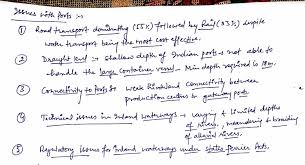 Issues with ports :-
① Road transport dominating (55%) followed by Rail (33%) despite
water transport being the most cost effective.
② Draught level :→ shallow depth of Indian ports → not able to
handle the large container vessel - Min depth required is 18m.
③ Connectivity to Ports → weak hinterland connectivity between
production centres & gateway ports
④ Technical issues in Inland waterways → varying & limited depths
of rivers, meandering & braiding
of alluvial rivers.
⑤ Regulatory issues for inland waterways under states ferries Acts.